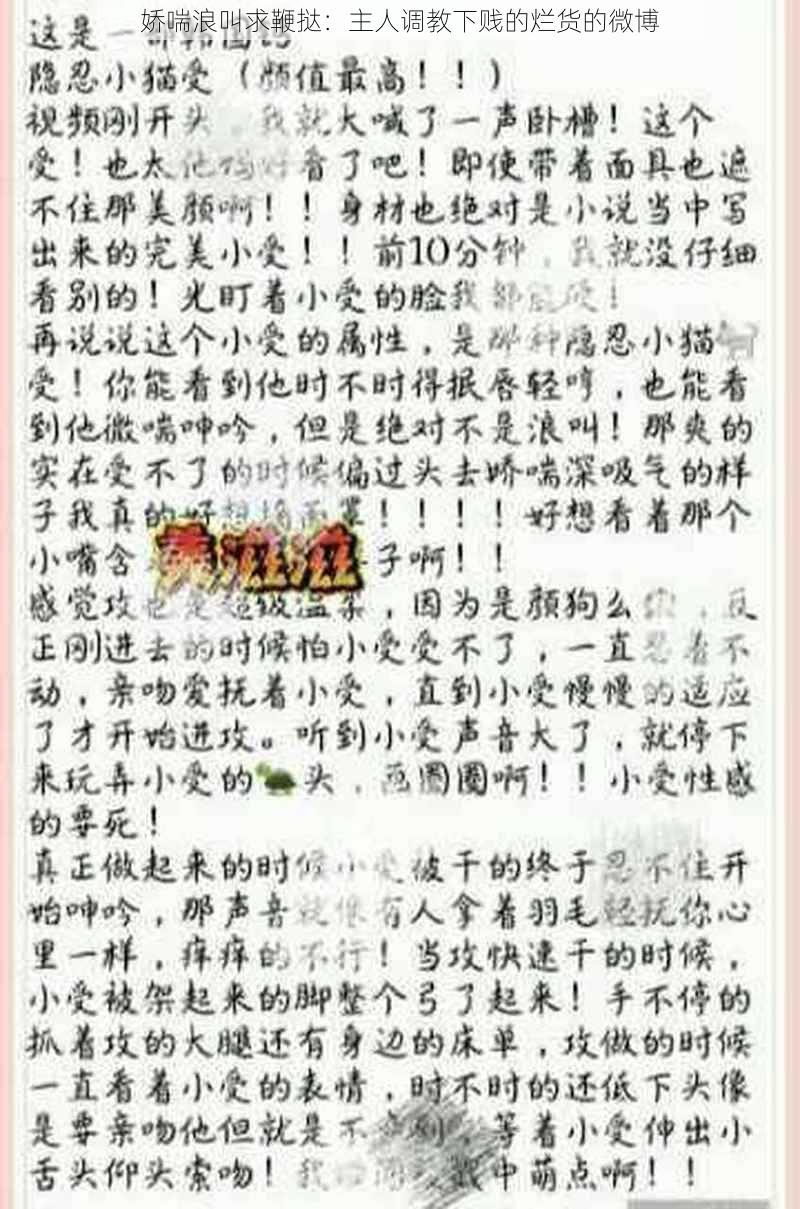 娇喘浪叫求鞭挞：主人调教下贱的烂货的微博
这是一部韩国的
隐忍小猫受（颜值最高！！）
视频刚开头，我就大喊了一声卧槽！这个
受！也太他妈好看了吧！即使带着面具也遮
不住那美颜啊！！身材也绝对是小说当中写
出来的完美小受！！前10分钟，我就没仔细
看别的！光盯着小受的脸我都能硬！
再说说这个小受的属性，是那种隐忍小猫
受！你能看到他时不时得抿唇轻哼，也能看
到他微喘呻吟，但是绝对不是浪叫！那爽的
实在受不了的时候偏过头去娇喘深吸气的样
子我真的好想摘面罩！！！！好想看着那个
小嘴含 美滋滋 子啊！！
感觉攻也是超级温柔，因为是颜狗么，反
正刚进去的时候怕小受受不了，一直忍着不
动，亲吻爱抚着小受，直到小受慢慢的适应
了才开始进攻。听到小受声音大了，就停下
来玩弄小受的头，画圈圈啊！！小受性感
的要死！
真正做起来的时候小受被干的终于忍不住开
始呻吟，那声音就像有人拿着羽毛轻抚你心
里一样，痒痒的不行！当攻快速干的时候，
小受被架起来的脚整个弓了起来！手不停的
抓着攻的大腿还有身边的床单，攻做的时候
一直看着小受的表情，时不时的还低下头像
是要亲吻他但就是不亲，等着小受伸出小
舌头仰头索吻！我 戳中萌点啊！！